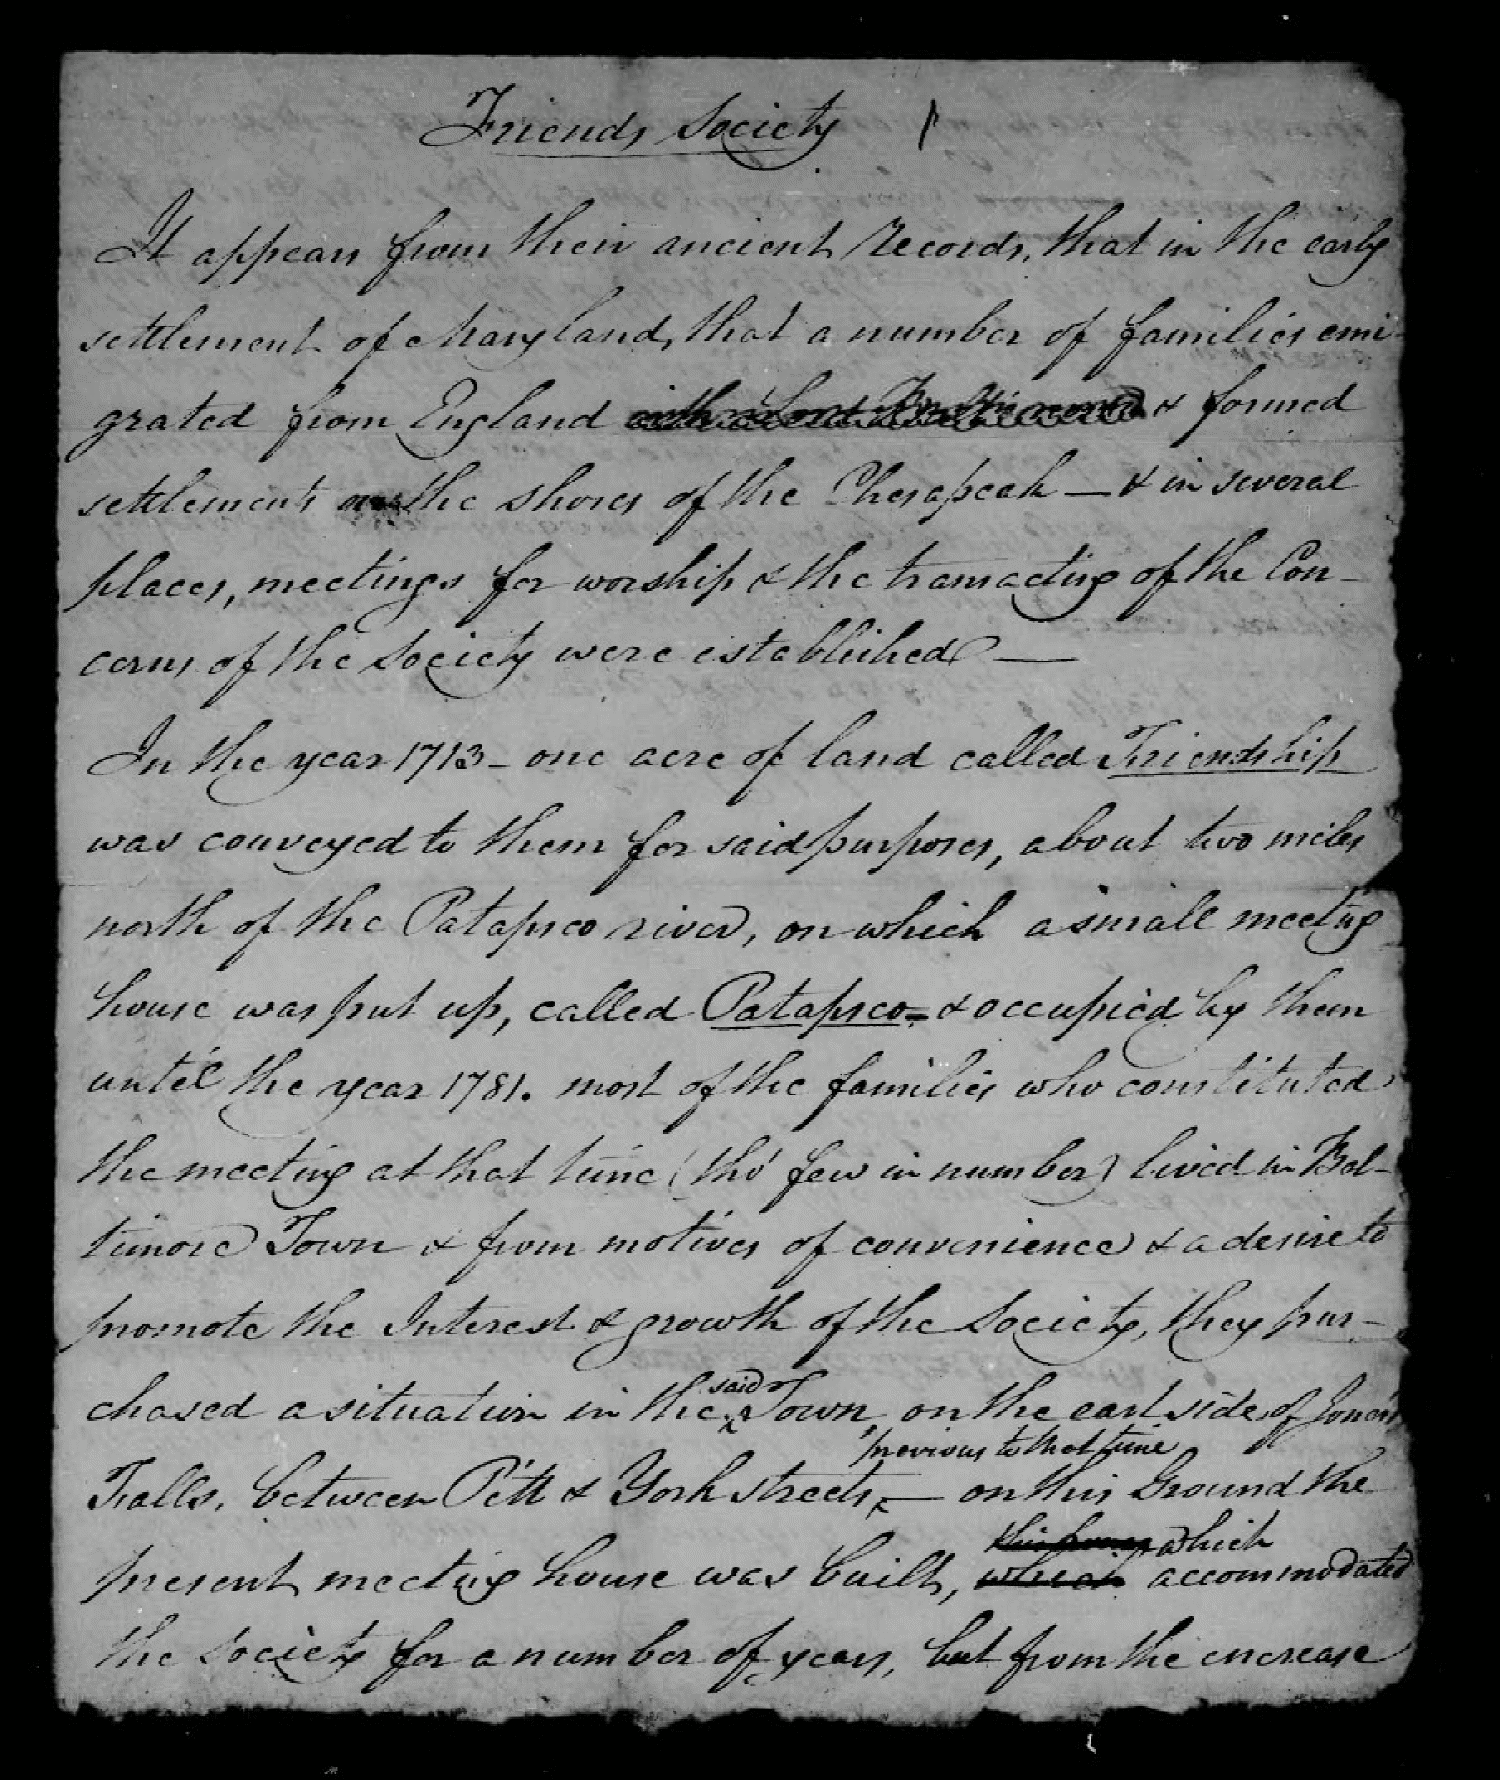 Friends Society 1
It appears from their ancient Records, that in the early
settlement of Maryland, that a number of families emi-
grated from England & formed
settlements on the shores of the Chesapeak — & in several
places, meetings for worship & the transacting of the Con-
cerns of the Society were established —
In the year 1713 - one acre of land called Friendship
was conveyed to them for said purposes, about two miles
north of the Patapsco river, on which a small meeting
house was put up, called Patapsco - & occupied by them
until the year 1781. most of the families who constituted
the meeting at that time (tho' few in number) lived in Bal-
timore Town & from motives of convenience & a desire to
promote the Interest & growth of the Society, they pur-
said
chased a situation in the Town, on the east side of Jones's
previous to that time
Falls, between Pitt & York streets, — on this Ground the
this house which
present meeting house was built, which accommodated
the Society for a number of years, but from the increase